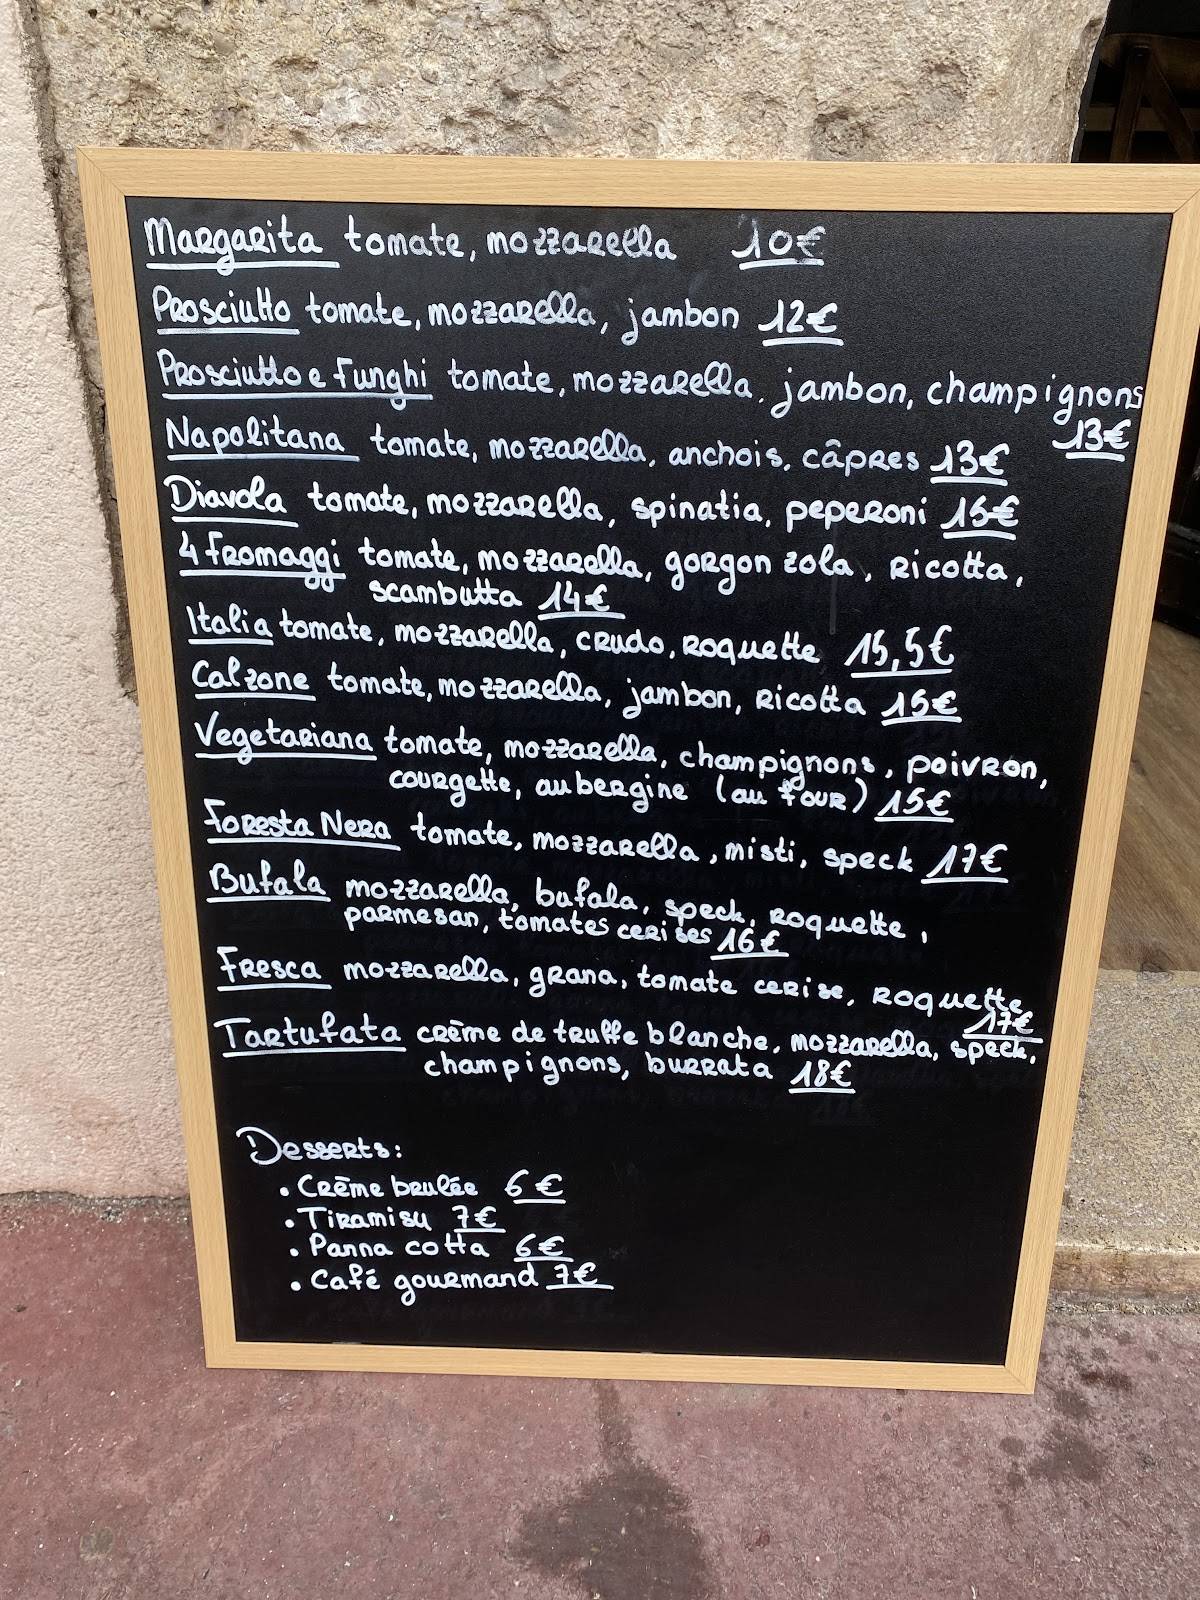 Margarita tomate, mozzarella 10€
Prosciutto tomate, mozzarella, jambon 12€
Prosciutto e Funghi tomate, mozzarella, jambon, champignons
13€
Napolitana tomate, mozzarella, anchois, câpres 13€
Diavola tomate, mozzarella, spinatia, peperoni 15€
4 fromaggi tomate, mozzarella, gorgon zola, ricotta,
scambutta 14€
Italia tomate, mozzarella, crudo, roquette 15,5€
Calzone tomate, mozzarella, jambon, ricotta 15€
Vegetariana tomate, mozzarella, champignons, poivron,
courgette, aubergine (au four) 15€
Foresta Nera tomate, mozzarella, misti, speck 17€
Bufala mozzarella, bufala, speck, roquette,
parmesan, tomates cerises 16€
Fresca mozzarella, grana, tomate cerise, roquette
17€
Tartufata crème de truffe blanche, mozzarella, speck,
champignons, burrata 18€
Desserts:
• Crème brulée 6€
• Tiramisu 7€
• Panna cotta 6€
• Café gourmand 7€